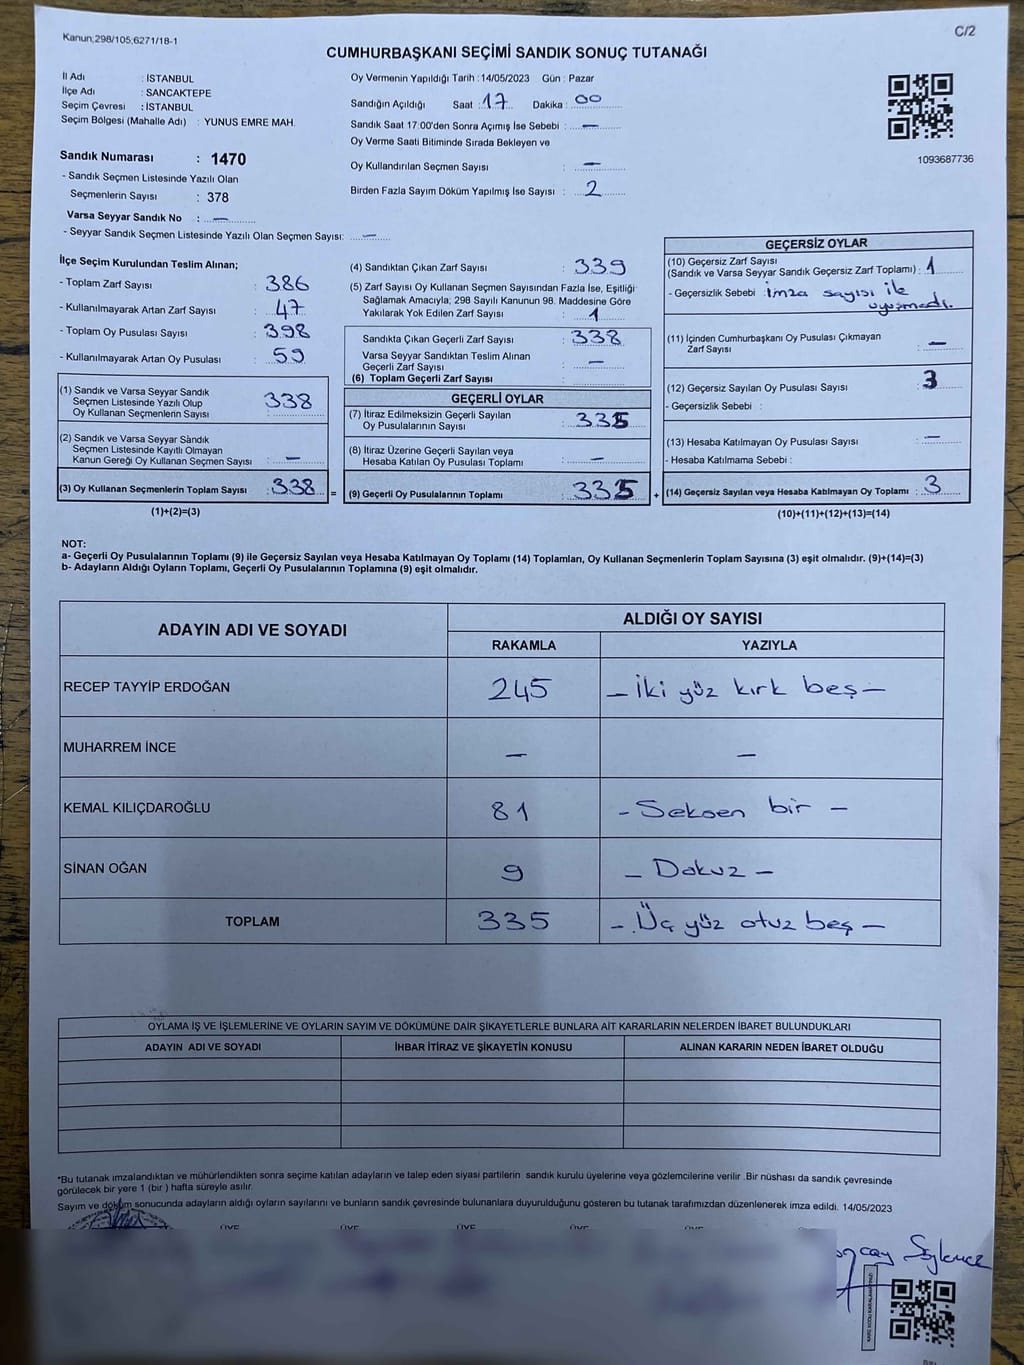 Kanun;298/105;6271/18-1
C/2
CUMHURBAŞKANI SEÇİMİ SANDIK SONUÇ TUTANAĞI
İl Adı : İSTANBUL
İlçe Adı : SANCAKTEPE
Seçim Çevresi : İSTANBUL
Seçim Bölgesi (Mahalle Adı) : YUNUS EMRE MAH.
Sandık Numarası : 1470
- Sandık Seçmen Listesinde Yazılı Olan
Seçmenlerin Sayısı : 378
Varsa Seyyar Sandık No : —
- Seyyar Sandık Seçmen Listesinde Yazılı Olan Seçmen Sayısı: —
Oy Vermenin Yapıldığı Tarih : 14/05/2023 Gün : Pazar
Sandığın Açıldığı Saat : 17 Dakika : 00
Sandık Saat 17:00'den Sonra Açımış İse Sebebi : —
Oy Verme Saati Bitiminde Sırada Bekleyen ve
Oy Kullandırılan Seçmen Sayısı : —
Birden Fazla Sayım Döküm Yapılmış İse Sayısı : 2
1093687736
İlçe Seçim Kurulundan Teslim Alınan;
- Toplam Zarf Sayısı : 386
- Kullanılmayarak Artan Zarf Sayısı : 47
- Toplam Oy Pusulası Sayısı : 398
- Kullanılmayarak Artan Oy Pusulası : 59
(1) Sandık ve Varsa Seyyar Sandık
Seçmen Listesinde Yazılı Olup
Oy Kullanan Seçmenlerin Sayısı : 338
(2) Sandık ve Varsa Seyyar Sandık
Seçmen Listesinde Kayıtlı Olmayan
Kanun Gereği Oy Kullanan Seçmen Sayısı : —
(3) Oy Kullanan Seçmenlerin Toplam Sayısı : 338 =
(1)+(2)=(3)
(4) Sandıktan Çıkan Zarf Sayısı : 339
(5) Zarf Sayısı Oy Kullanan Seçmen Sayısından Fazla İse, Eşitliği
Sağlamak Amacıyla; 298 Sayılı Kanunun 98. Maddesine Göre
Yakılarak Yok Edilen Zarf Sayısı : 1
Sandıkta Çıkan Geçerli Zarf Sayısı : 338
Varsa Seyyar Sandıktan Teslim Alınan
Geçerli Zarf Sayısı : —
(6) Toplam Geçerli Zarf Sayısı :
GEÇERLİ OYLAR
(7) İtiraz Edilmeksizin Geçerli Sayılan
Oy Pusulalarının Sayısı : 335
(8) İtiraz Üzerine Geçerli Sayılan veya
Hesaba Katılan Oy Pusulası Toplamı : —
(9) Geçerli Oy Pusulalarının Toplamı : 335 +
GEÇERSİZ OYLAR
(10) Geçersiz Zarf Sayısı
(Sandık ve Varsa Seyyar Sandık Geçersiz Zarf Toplamı) : 1
- Geçersizlik Sebebi : İmza sayısı ile
uyuşmadı.
(11) İçinden Cumhurbaşkanı Oy Pusulası Çıkmayan
Zarf Sayısı : —
(12) Geçersiz Sayılan Oy Pusulası Sayısı : 3
- Geçersizlik Sebebi :
(13) Hesaba Katılmayan Oy Pusulası Sayısı : —
- Hesaba Katılmama Sebebi :
(14) Geçersiz Sayılan veya Hesaba Katılmayan Oy Toplamı : 3
(10)+(11)+(12)+(13)=(14)
NOT:
a- Geçerli Oy Pusulalarının Toplamı (9) ile Geçersiz Sayılan veya Hesaba Katılmayan Oy Toplamı (14) Toplamları, Oy Kullanan Seçmenlerin Toplam Sayısına (3) eşit olmalıdır. (9)+(14)=(3)
b- Adayların Aldığı Oyların Toplamı, Geçerli Oy Pusulalarının Toplamına (9) eşit olmalıdır.
ADAYIN ADI VE SOYADI
ALDIĞI OY SAYISI
RAKAMLA YAZIYLA
RECEP TAYYİP ERDOĞAN 245 – İki yüz kırk beş –
MUHARREM İNCE — —
KEMAL KILIÇDAROĞLU 81 – Seksen bir –
SİNAN OĞAN 9 – Dokuz –
TOPLAM 335 – Üç yüz otuz beş –
OYLAMA İŞ VE İŞLEMLERİNE VE OYLARIN SAYIM VE DÖKÜMÜNE DAİR ŞİKAYETLERLE BUNLARA AİT KARARLARIN NELERDEN İBARET BULUNDUKLARI
ADAYIN ADI VE SOYADI İHBAR İTİRAZ VE ŞİKAYETİN KONUSU ALINAN KARARIN NEDEN İBARET OLDUĞU
*Bu tutanak imzalandıktan ve mühürlendikten sonra seçime katılan adayların ve talep eden siyasi partilerin sandık kurulu üyelerine veya gözlemcilerine verilir. Bir nüshası da sandık çevresinde
görülecek bir yere 1 (bir ) hafta süreyle asılır.
Sayım ve döküm sonucunda adayların aldığı oyların sayılarını ve bunların sandık çevresinde bulunanlara duyurulduğunu gösteren bu tutanak tarafımızdan düzenlenerek imza edildi. 14/05/2023
ÜYE ÜYE ÜYE ÜYE ÜYE